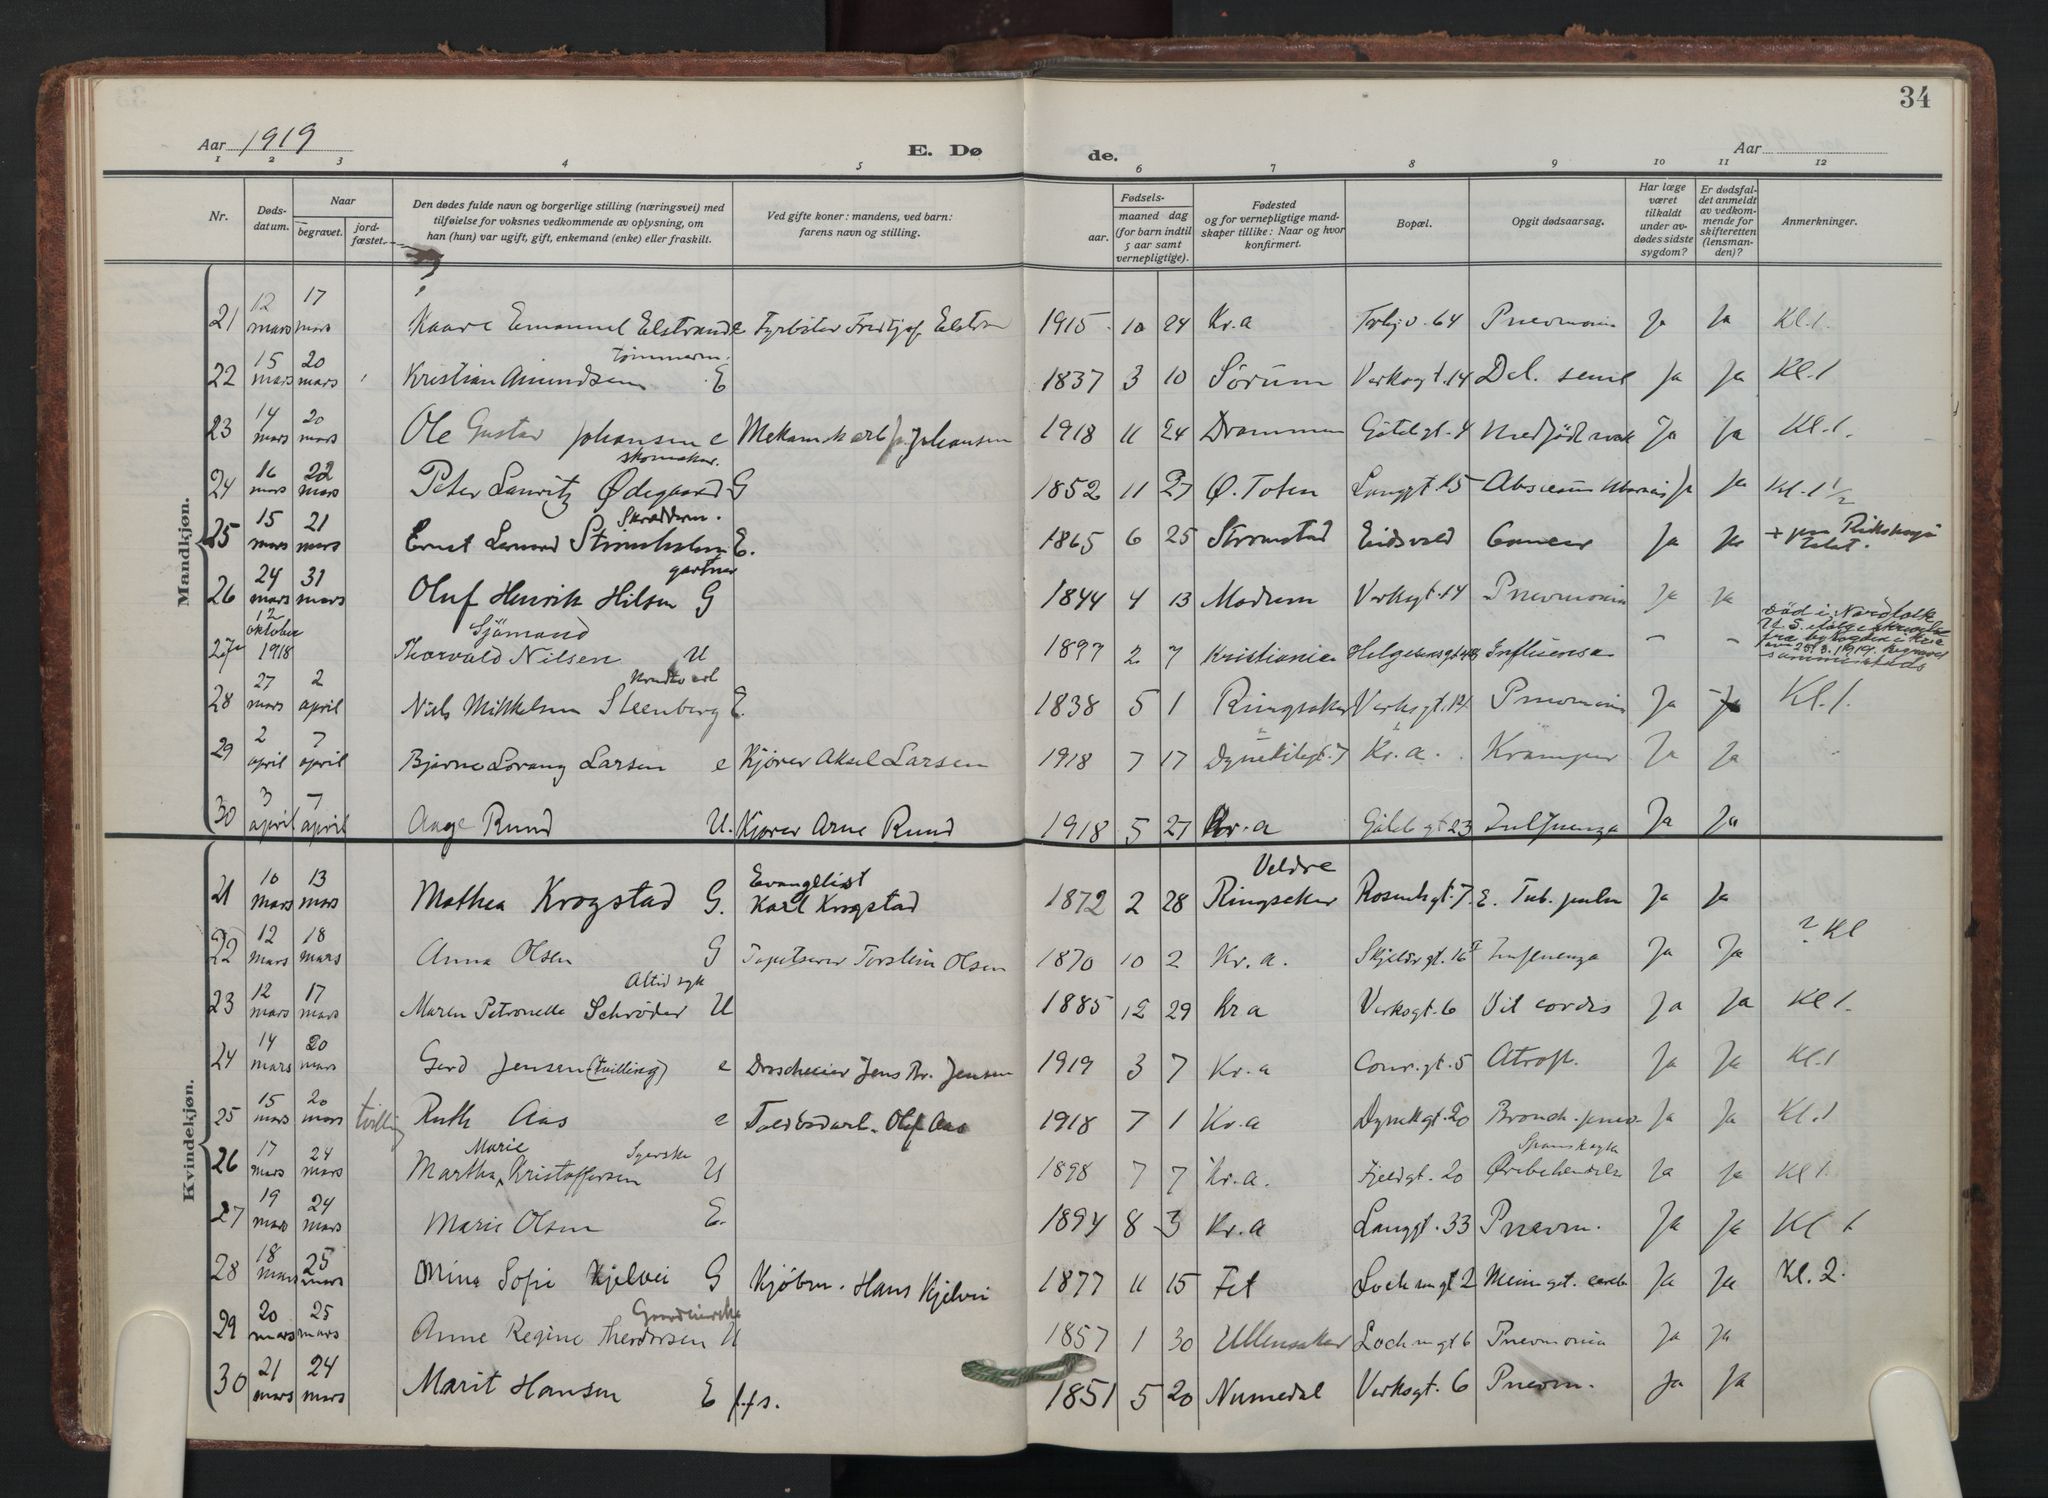 34
Aar 1919
E. Dø
de.
Aar
1 2 3 4 5 6 7 8 9 10 11 12
Nr.
Døds-
datum.
Naar
begravet.
jord-
fæstet.
Den dødes fulde navn og borgerlige stilling (næringsvei) med
tilføielse for voksnes vedkommende av oplysning, om
han (hun) var ugift, gift, enkemand (enke) eller fraskilt.
Ved gifte koner: mandens, ved barn:
farens navn og stilling.
Fødsels-
aar.
maaned dag
(for barn indtil
5 aar samt
vernepligtige).
Fødested
og for vernepligtige mand-
skaper tillike: Naar og hvor
konfirmert.
Bopæl.
Opgit dødsaarsag.
Har læge
været
tilkaldt
under av-
dødes sidste
sygdom?
Er dødsfal-
det anmeldt
av vedkom-
mende for
skifteretten
(lensman-
den)?
Anmerkninger.
Mandkjøn.
21 12 mars 17 mars Kaare Emanuel Elstrand e Fyrbøter Fredtjof 1915 10 24 Kr.a 64 Pneumonia Ja Ja Kl.1.
tømmerm.
22 15 mars 20 mars Kristian Amundsen E 1837 3 10 Sørum Verksgt. 14 Del. senil Ja Ja Kl.1
23 14 mars 20 mars Ole Gustav Johansen e Johansen 1918 11 24 Drammen Gøtebgt. 4 Ja Ja Kl.1.
skomaker.
24 16 mars 22 mars Peter Lauritz Ødegaard G 1852 11 27 Ø. Toten Langgt. 15 Ja Ja Kl. 1 1/2
Skrædderm.
25 15 mars 21 mars Ernst Strømholm E. 1865 6 25 Strømstad Eidsvold Cancer Ja Ja + paa Rikshospi
talet.
gartner
26 24 mars 31 mars Oluf Henrik Hilsen G 1844 4 13 Modum Verksgt. 14 Pneumonia Ja Ja
Sjømand
27 12 oktober 1918 Thorvald Nilsen U 1897 2 7 Kristiania Helgesensgt. Influensa - - død i Nordfolk
U.S. ifølge skrivelse
fra byfogden i Kr.a
av 25/3. 1919. Begravet
sammesteds
28 27 mars 2 april Niels Mikkelsen Steenberg E. 1838 5 1 Ringsaker Verksgt. 14 Pneumonia Ja Ja Kl.1.
29 2 april 7 april Bjarne Lorang Larsen e Kjører Aksel Larsen 1918 7 17 Dynekilegt. 7 Kr.a. Kramper Ja Ja
30 3 april 7 april Aage Rund U. Kjører Arne Rund 1918 5 27 Kr.a Gøtebgt. 23 Influenza Ja Ja
Kvindekjøn.
Evangelist Veldre
21 10 mars 13 mars Mathea Krogstad G. Karl Krogstad 1872 2 28 Ringsaker Rosenhgt. 7. E. Tub. pulm Ja Ja
22 12 mars 18 mars Anna Olsen G Tapetserer Torstein Olsen 1870 10 2 Kr.a. Skjeldrgt. 16 Influenza Ja Ja ? Kl
Altid syk
23 12 mars 17 mars Maren Petronella Schrøder U 1885 12 29 Kr a Verksgt. 6 Vit cordis Ja Ja Kl 1.
24 14 mars 20 mars Gerd Jensen (tvilling) e Droscheeier Jens Jensen 1919 3 7 Kr.a Conr.gt. 5 Atrof. Ja Ja Kl.1
25 15 mars 20 mars tvilling Ruth Aas e Toldbodarb. Olaf Aas 1918 7 1 Kr.a Dynekgt. 20 Bronch. pneu. Ja Ja Kl.1
Marie Syerske Spansksyke
26 17 mars 24 mars Martha Kristoffersen U 1898 7 7 Kr.a. Fjeldgt. 20 Ørebetændelse Ja Ja Kl 1.
27 19 mars 24 mars Marie Olsen E. 1894 8 3 Kr.a Langgt. 33 Pneum. Ja Ja Kl 1
28 18 mars 25 mars Mina Sofie Kjelvei G Kjøbm. Hans Kjelvei 1877 11 15 Fet Loch mgt 2 Meningit. cereb. Ja Ja Kl. 2.
29 20 mars 25 mars Anne Regine Theodorsen U 1857 1 30 Ullensaker Loch mgt 6 Pneumonia Ja Ja
30 21 mars 24 mars Marit Hansen E f.fs. 1851 5 20 Numedal Verksgt. 6 Pneum. Ja Ja